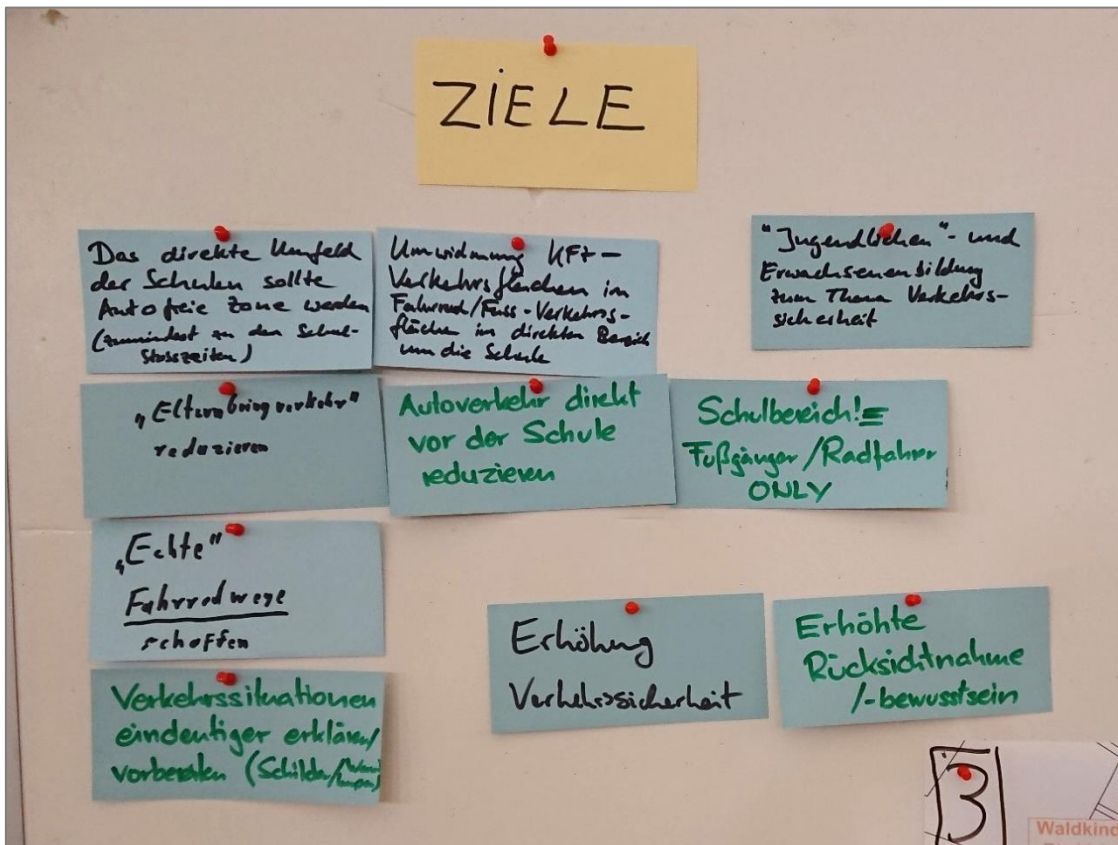 ZIELE
Das direkte Umfeld
der Schulen sollte
Autofreie Zone werden
(zumindest zu den Schul-
Stosszeiten)
Umwidmung KFZ-
Verkehrsflächen in
Fahrrad/Fuss-Verkehrs-
flächen im direkten Bereich
um die Schule
"Jugendlichen"- und
Erwachsenenbildung
zum Thema Verkehrs-
sicherheit
„Elternbringverkehr"
reduzieren
Autoverkehr direkt
vor der Schule
reduzieren
Schulbereich!=
Fußgänger/Radfahrer
ONLY
„Echte"
Fahrradwege
schaffen
Verkehrssituationen
eindeutiger erklären/
vorbereiten (Schilder/
Erhöhung
Verkehrssicherheit
Erhöhte
Rücksichtnahme
/-bewusstsein
3
Waldkind